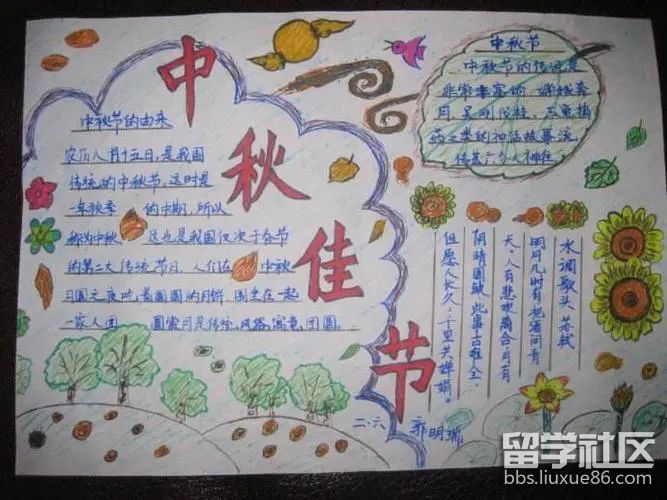 中秋佳节
中秋节的由来
农历八月十五日,是我国
传统的中秋节,这时是
一年秋季 的中期,所以
称为中秋 这也是我国仅次于春节
的第二大传统节日,人们在 中秋
月圆之夜吃着圆圆的月饼,围坐在一起
一家人团 圆赏月是传统,风俗,寓意,团圆.
中秋节
中秋节的传说是
非常丰富的,嫦娥奔
月,吴刚伐桂,玉兔捣
药之类的神话故事流
传甚广
水调歌头 苏轼
明月几时有,把酒问青
天,人有悲欢离合,月有
阴晴圆缺,此事古难全.
但愿人长久,千里共婵娟.
二.六 郭明瑞
留学社区
bbs.liuxue86.com